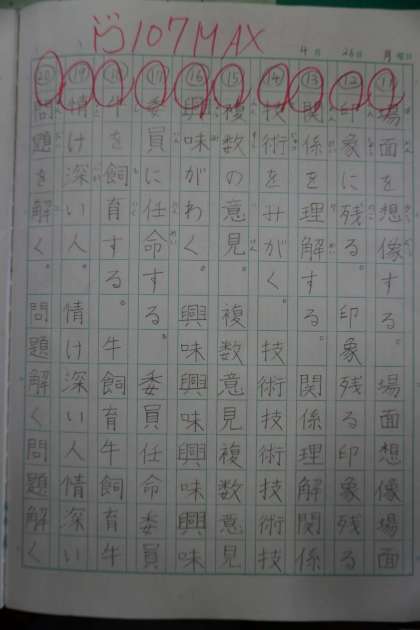 107 MAX
4月26日 月曜日
⑪場面を想像する。場面想像場面
⑫印象に残る。印象残る印象残る
⑬関係を理解する。関係理解関係
⑭技術をみがく。技術技術技術技
⑮複数の意見。複数意見複数意見
⑯興味がわく。興味興味興味興味
⑰委員に任命する。委員任命委員
⑱牛を飼育する。牛飼育牛飼育牛
⑲情け深い人。情け深い人情深い
⑳問題を解く。問題解く問題解く